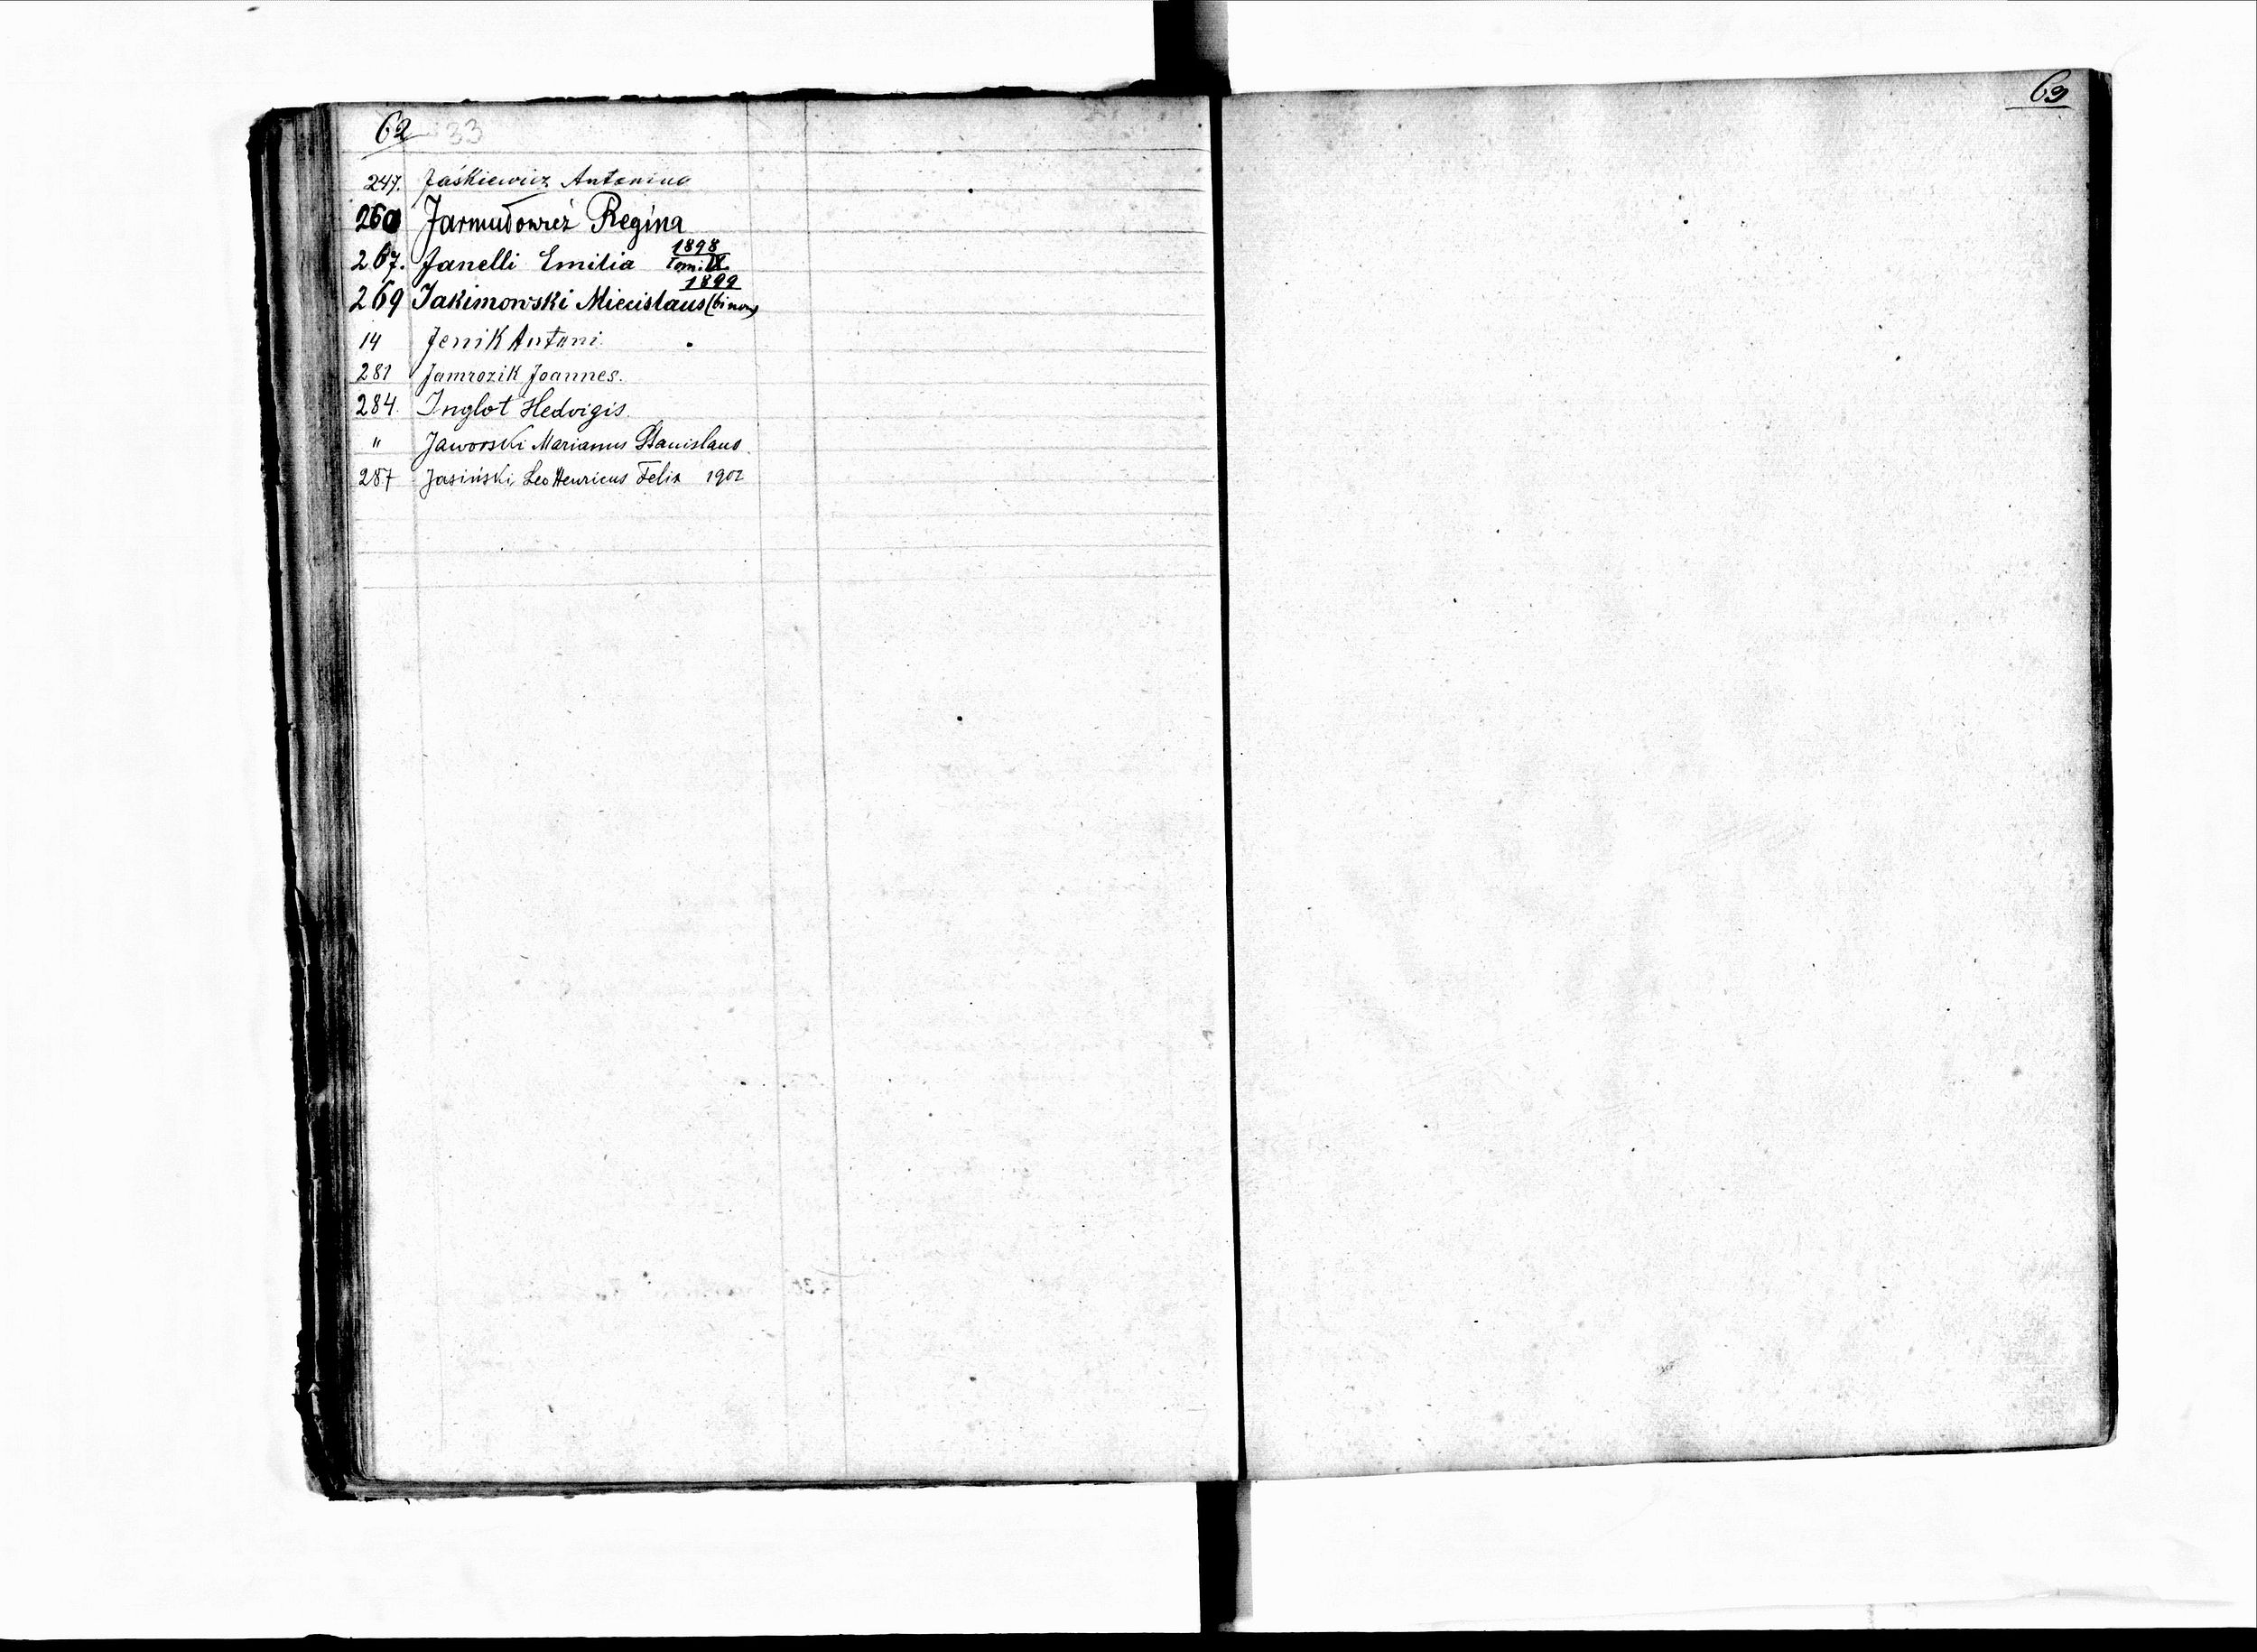 62 33
247. Jaśkiewicz Antonina
260 Jarmudowicz Regina
267. Janelli Emilia 1898 Tom: IX.
269 Jakimowski Miecislaus (binom) 1899
14 Jenik Antoni
281 Jamrozik Joannes.
284. Inglot Hedvigis.
" Jaworski Marianus Stanislaus
287 Jasiński Leo Henricus Felix 1902
63